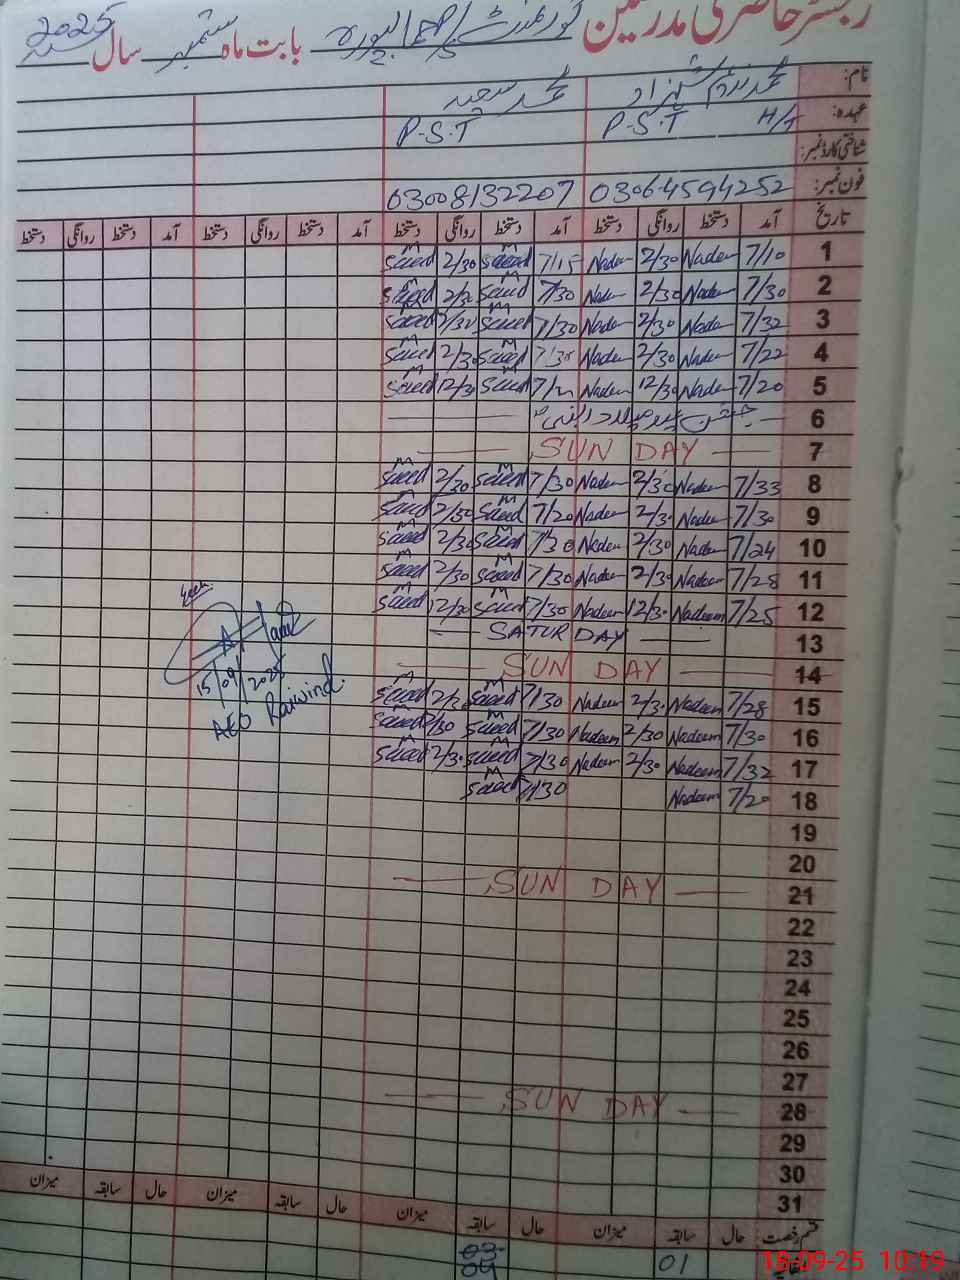 رجسٹر حاضری مدرسین گورنمنٹ بابت ماہ ستمبر سال 2025
نام: محمد ندیم شہزاد محمد سعید
عہدہ: H/T P-S-T P-S-T
شناختی کارڈ نمبر:
فون نمبر: 03064594252 03008132207
تاریخ آمد دستخط روانگی دستخط آمد دستخط روانگی دستخط آمد دستخط روانگی دستخط آمد دستخط روانگی دستخط
1 7/10 Nadeem 2/30 Nadeem 7/15 M Saeed 2/30 M Saeed
2 7/30 Nadeem 2/30 Nadeem 7/30 M Saeed 2/30 M Saeed
3 7/32 Nadeem 2/30 Nadeem 7/30 M Saeed 2/30 M Saeed
4 7/22 Nadeem 2/30 Nadeem 7/30 M Saeed 2/30 M Saeed
5 7/20 Nadeem 12/30 Nadeem M Saeed 12/30 M Saeed
6 جشن عید میلاد النبی
7 SUN DAY
8 7/33 Nadeem 2/30 Nadeem 7/30 M Saeed 2/30 M Saeed
9 7/30 Nadeem 2/30 Nadeem 7/20 M Saeed 2/30 M Saeed
10 7/24 Nadeem 2/30 Nadeem 7/30 M Saeed 2/30 M Saeed
11 7/28 Nadeem 2/30 Nadeem 7/30 M Saeed 2/30 M Saeed
12 7/25 Nadeem 12/30 Nadeem 7/30 M Saeed 12/30 M Saeed
13 SATUR DAY
14 SUN DAY
15 7/28 Nadeem 2/30 Nadeem 7/30 M Saeed 2/30 M Saeed
16 7/30 Nadeem 2/30 Nadeem 7/30 M Saeed 2/30 M Saeed
17 7/32 Nadeem 2/30 Nadeem 7/30 M Saeed 2/30 M Saeed
18 7/20 Nadeem 7/30 M Saeed
15/09/2025
AEO Raiwind.
19
20
21 SUN DAY
22
23
24
25
26
27
28 SUN DAY
29
30
31
قسم رخصت حال سابقہ میزان حال سابقہ میزان حال سابقہ میزان حال سابقہ میزان
01 03
04
18-09-25 10:19